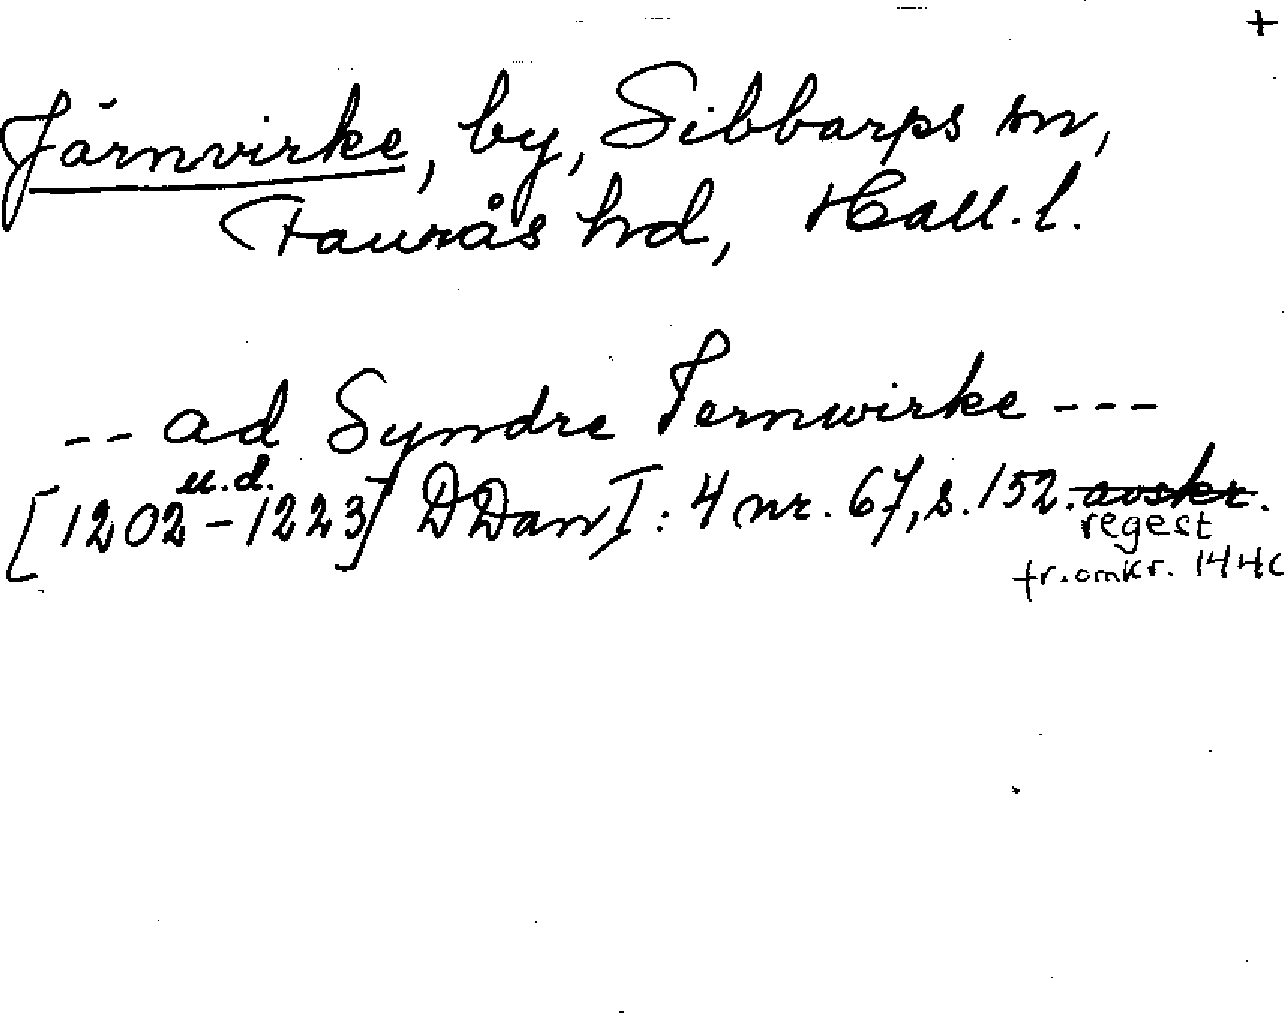 +
Järnvirke, by, Sibbarps sn,
Faurås hd, Hall.l.
-- ad Syndre Iernwirke ---
u.d.
[1202-1223] DDan I:4 nr. 67, s. 152. avskr.
regest
fr. omkr. 1440